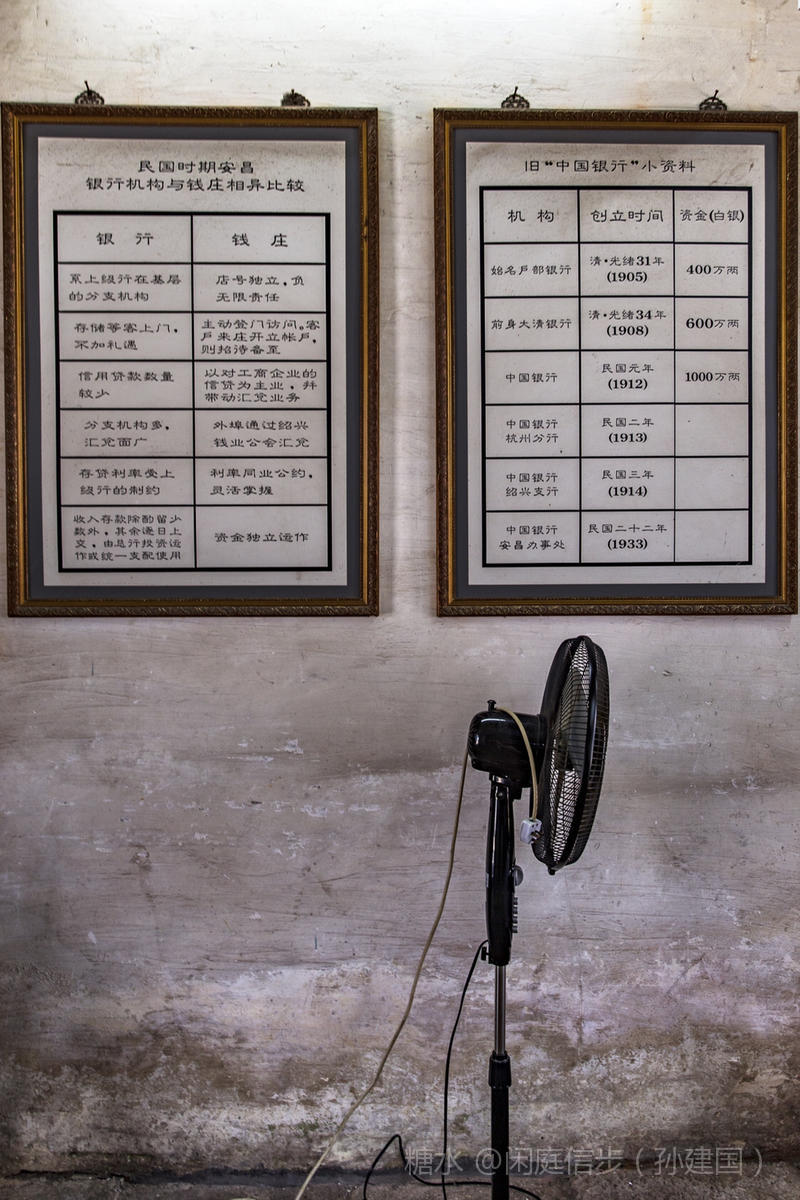 民国时期安昌
银行机构与钱庄相异比较
银 行
钱 庄
系上级行在基层
的分支机构
店号独立，负
无限责任
存储等客上门，
不加礼遇
主动登门访问。客
户来庄开立帐户，
则招待备至
信用贷款数量
较少
以对工商企业的
信贷为主业，并
带动汇兑业务
分支机构多，
汇兑面广
外埠通过绍兴
钱业公会汇兑
存贷利率受上
级行的制约
利率同业公约，
灵活掌握
收入存款除酌留少
数外，其余逐日上
交，由总行投资运
作或统一支配使用
资金独立运作
旧“中国银行”小资料
机 构
创立时间
资金(白银)
始名户部银行
清·光绪31年
(1905)
400万两
前身大清银行
清·光绪34年
(1908)
600万两
中国银行
民国元年
(1912)
1000万两
中国银行
杭州分行
民国二年
(1913)
中国银行
绍兴支行
民国三年
(1914)
中国银行
安昌办事处
民国二十二年
(1933)
糖水 @闲庭信步（孙建国）